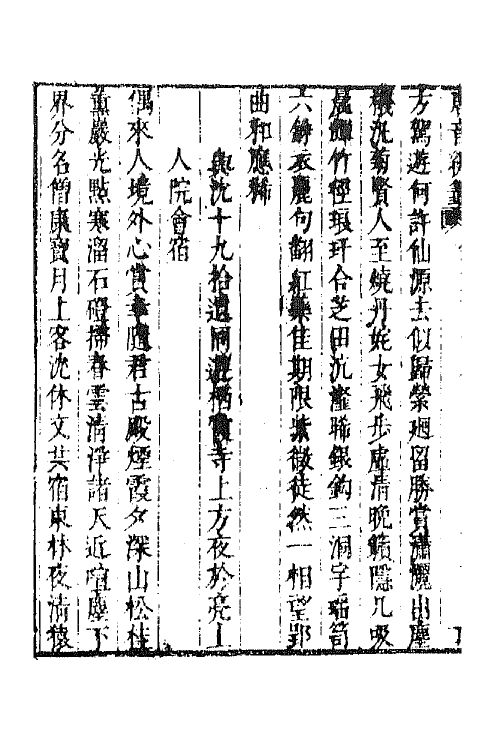 方駕遊何許仙源去似歸縈廻留勝賞瀟灑出塵
機泛菊賢人至燒丹姹女飛步虛清晚籟隱几吸
晨暉竹徑琅玕合芝田沆瀣晞銀鈎三洞字瑤笥
六銖衣麗句翻紅藥佳期限紫微徒然一相望郢
曲和應稀
與沈十九拾遺同遊栖霞寺上方夜於亮上
人院會宿
偶來人境外心賞幸隨君古殿煙霞夕深山松桂
薰巖光點寒溜石磴掃春雲清淨諸天近喧塵下
界分名僧康寶月上客沈休文共宿東林夜清猿